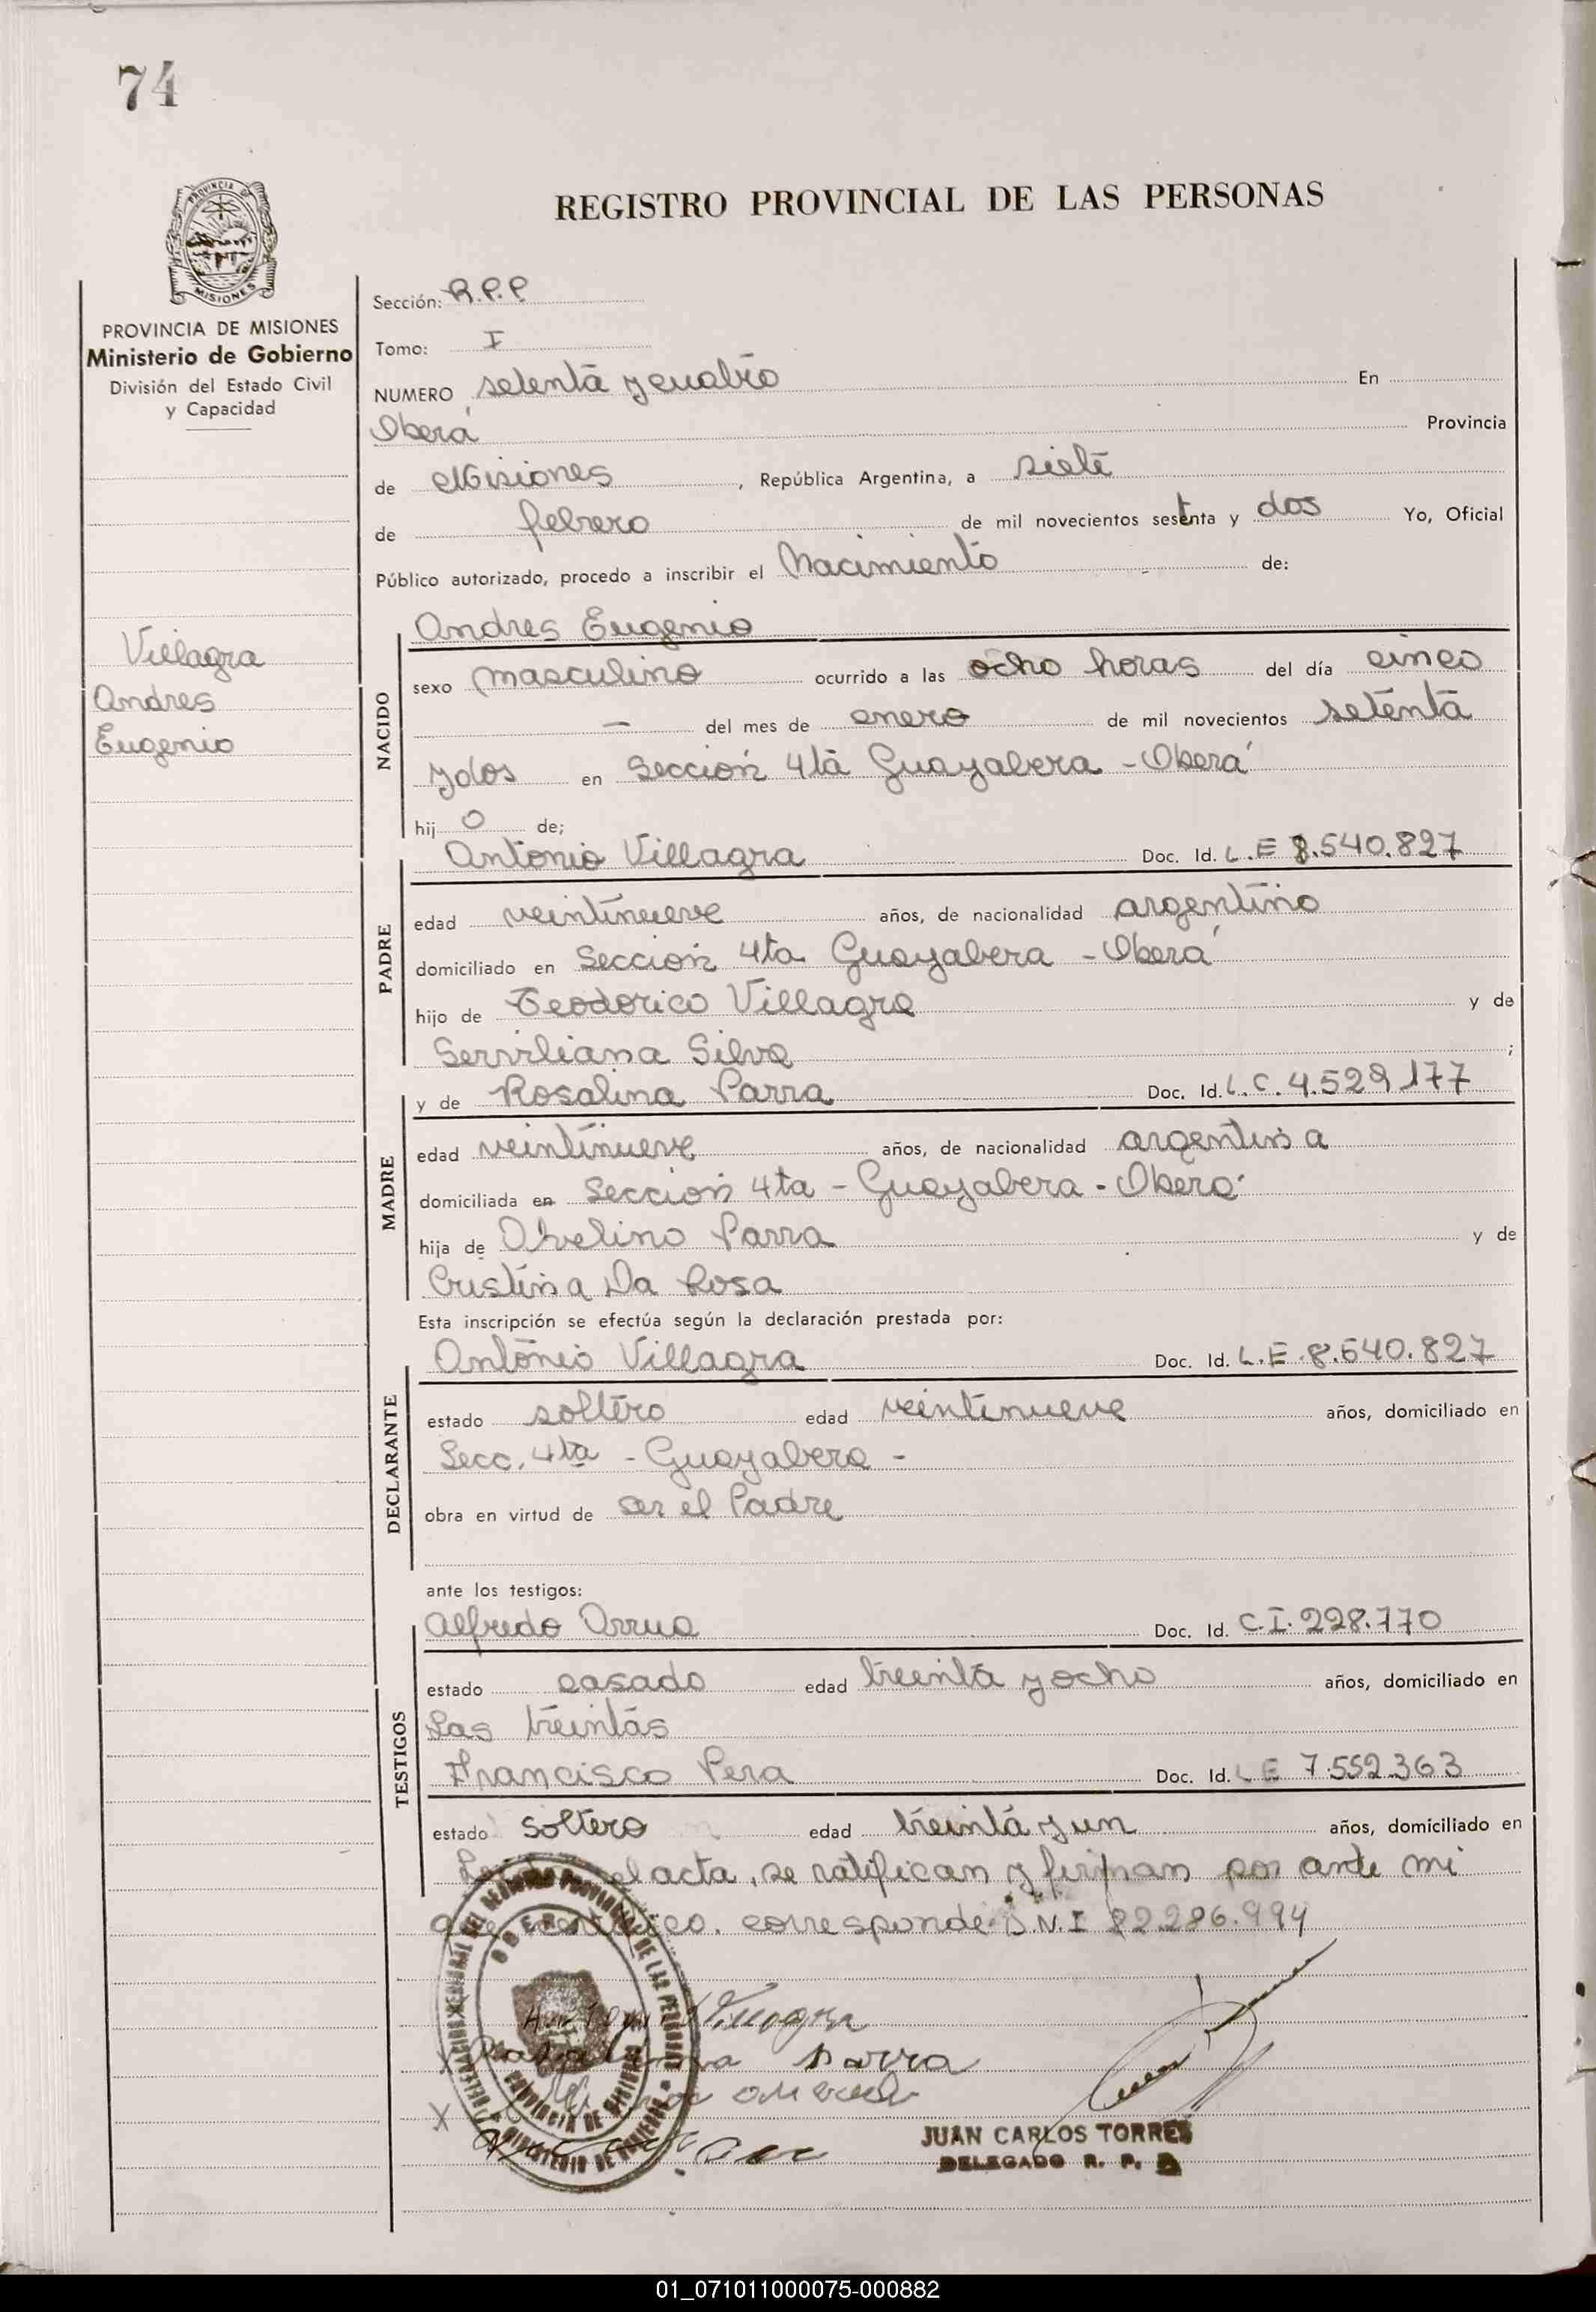 74
PROVINCIA DE
MISIONES
REGISTRO PROVINCIAL DE LAS PERSONAS
PROVINCIA DE MISIONES
Ministerio de Gobierno
División del Estado Civil
y Capacidad
Villagra
Andres
Eugenio
Sección: R.P.P
Tomo: I
NUMERO setenta y cuatro En
Oberá Provincia
de Misiones, República Argentina, a siete
de febrero de mil novecientos setenta y dos Yo, Oficial
Público autorizado, procedo a inscribir el Nacimiento de:
NACIDO
Andres Eugenio
sexo masculino ocurrido a las ocho horas del día cinco
— del mes de enero de mil novecientos setenta
y dos en Sección 4ta Guayabera - Oberá
hijo de;
PADRE
Antonio Villagra Doc. Id. L.E 8.540.827
edad veintinueve años, de nacionalidad argentino
domiciliado en Sección 4ta Guayabera - Oberá
hijo de Teodorico Villagra y de
Serviliana Silva ;
MADRE
y de Rosalina Parra Doc. Id. L.C. 4.529.177
edad veintinueve años, de nacionalidad argentina
domiciliada en Sección 4ta - Guayabera - Oberá
hija de Avelino Parra y de
Cristina Da Rosa
Esta inscripción se efectúa según la declaración prestada por:
DECLARANTE
Antonio Villagra Doc. Id. L.E. 8.540.827
estado soltero edad veintinueve años, domiciliado en
Secc. 4ta - Guayabera -
obra en virtud de ser el Padre
ante los testigos:
TESTIGOS
Alfredo Orrua Doc. Id. C.I. 228.770
estado casado edad treinta y ocho años, domiciliado en
Las treintas
Francisco Pera Doc. Id. LE 7.552.363
estado soltero edad treinta y un años, domiciliado en
el acta, se ratifican y firman por ante mi
que certifico. corresponde D.N.I 22.286.994
Villagra
Parra
JUAN CARLOS TORRES
DELEGADO R. P. P.
01_071011000075-000882